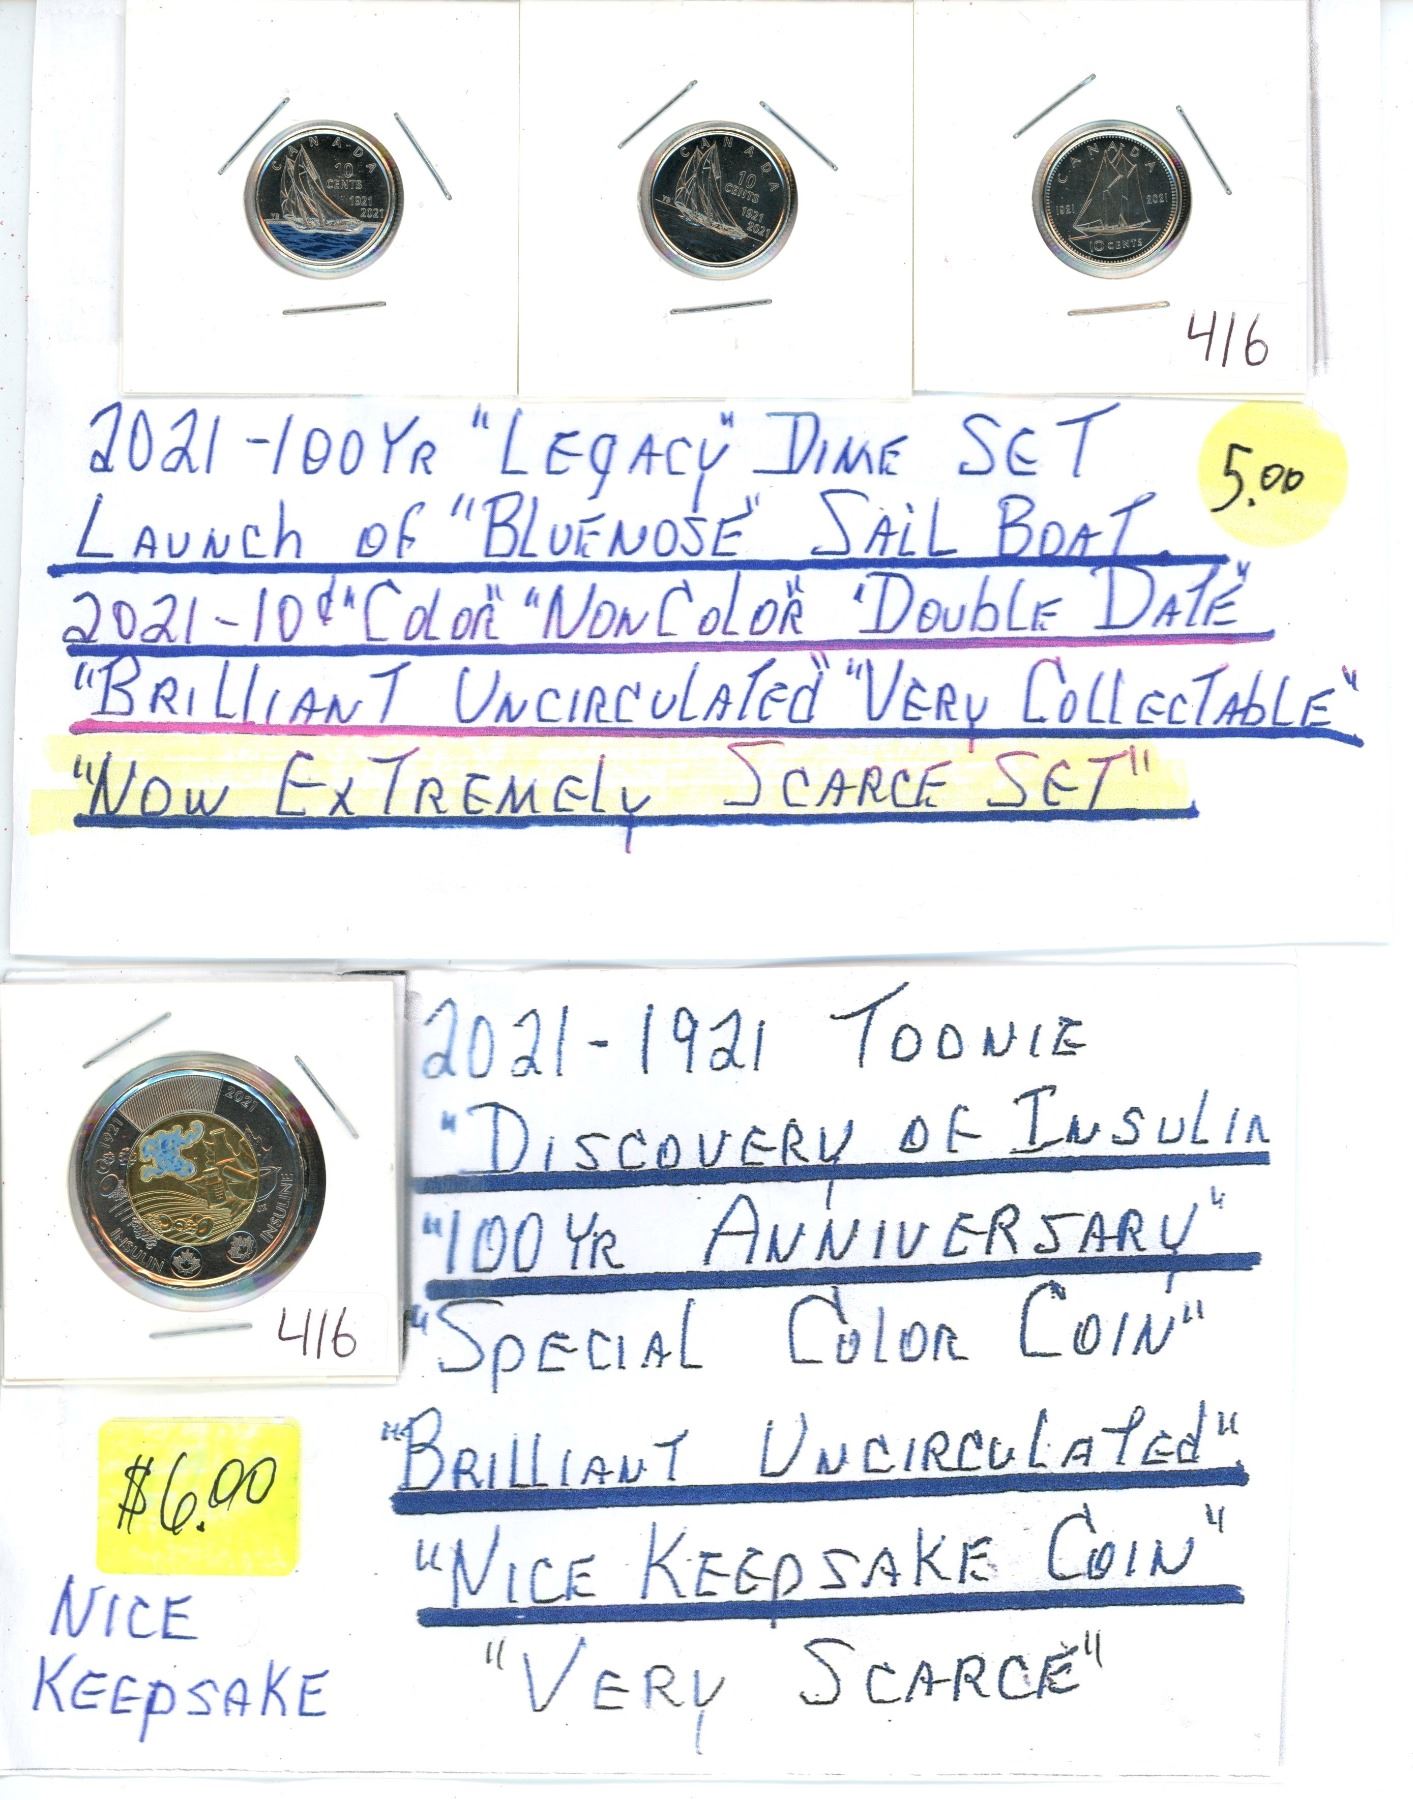 CANADA
10
CENTS
1921
2021
CANADA
10
CENTS
1921
2021
CANADA
1921
2021
10 CENTS
416
2021-100YR "LEGACY" DIME SET
5.00
LAUNCH OF "BLUENOSE" SAIL BOAT.
2021-10¢ "COLOR" "NONCOLOR" "DOUBLE DATE"
"BRILLIANT UNCIRCULATED" "VERY COLLECTABLE"
"NOW EXTREMELY SCARCE SET"
1921
2021
INSULIN
INSULINE
416
2021-1921 TOONIE
"DISCOVERY OF INSULIN
"100YR ANNIVERSARY"
"SPECIAL COLOR COIN"
"BRILLIANT UNCIRCULATED"
"NICE KEEPSAKE COIN"
"VERY SCARCE"
$6.00
NICE
KEEPSAKE